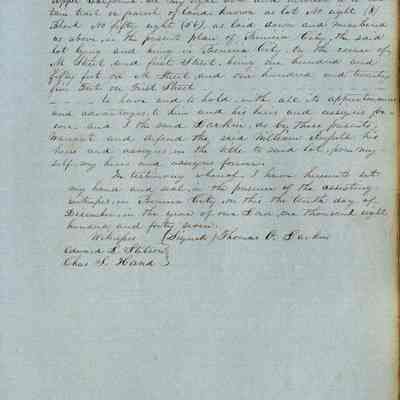 Upper California, all my right
tain tract or parcel of land known as lot No eight (8)
Block No fifty eight (58), as laid down and numbered
as above, in the present plan of Benicia City, the said
lot lying and being in Benicia City, on the corner of
M Street and first Street, being one hundred and
fifty feet on M Street and one hundred and twenty
five feet on First Street
to have and to hold, with all its appurtenances
and advantages, to him and his heirs and assigns for-
ever and I the said Larkin, do by these presents,
Warrant and defend the said William his
heirs and assigns, in the title to said lot, from my-
self, my heirs and assigns forever.
In testimony whereof I have hereunto set
my hand and seal, in the presence of the attesting
witnesses, in Benicia City, on this the tenth day of
December, in the year of our Lord, one thousand eight
hundred and forty seven.
Witnesses (Signed) Thomas O. Larkin
Edward L. Stetson
Chas L. Hand